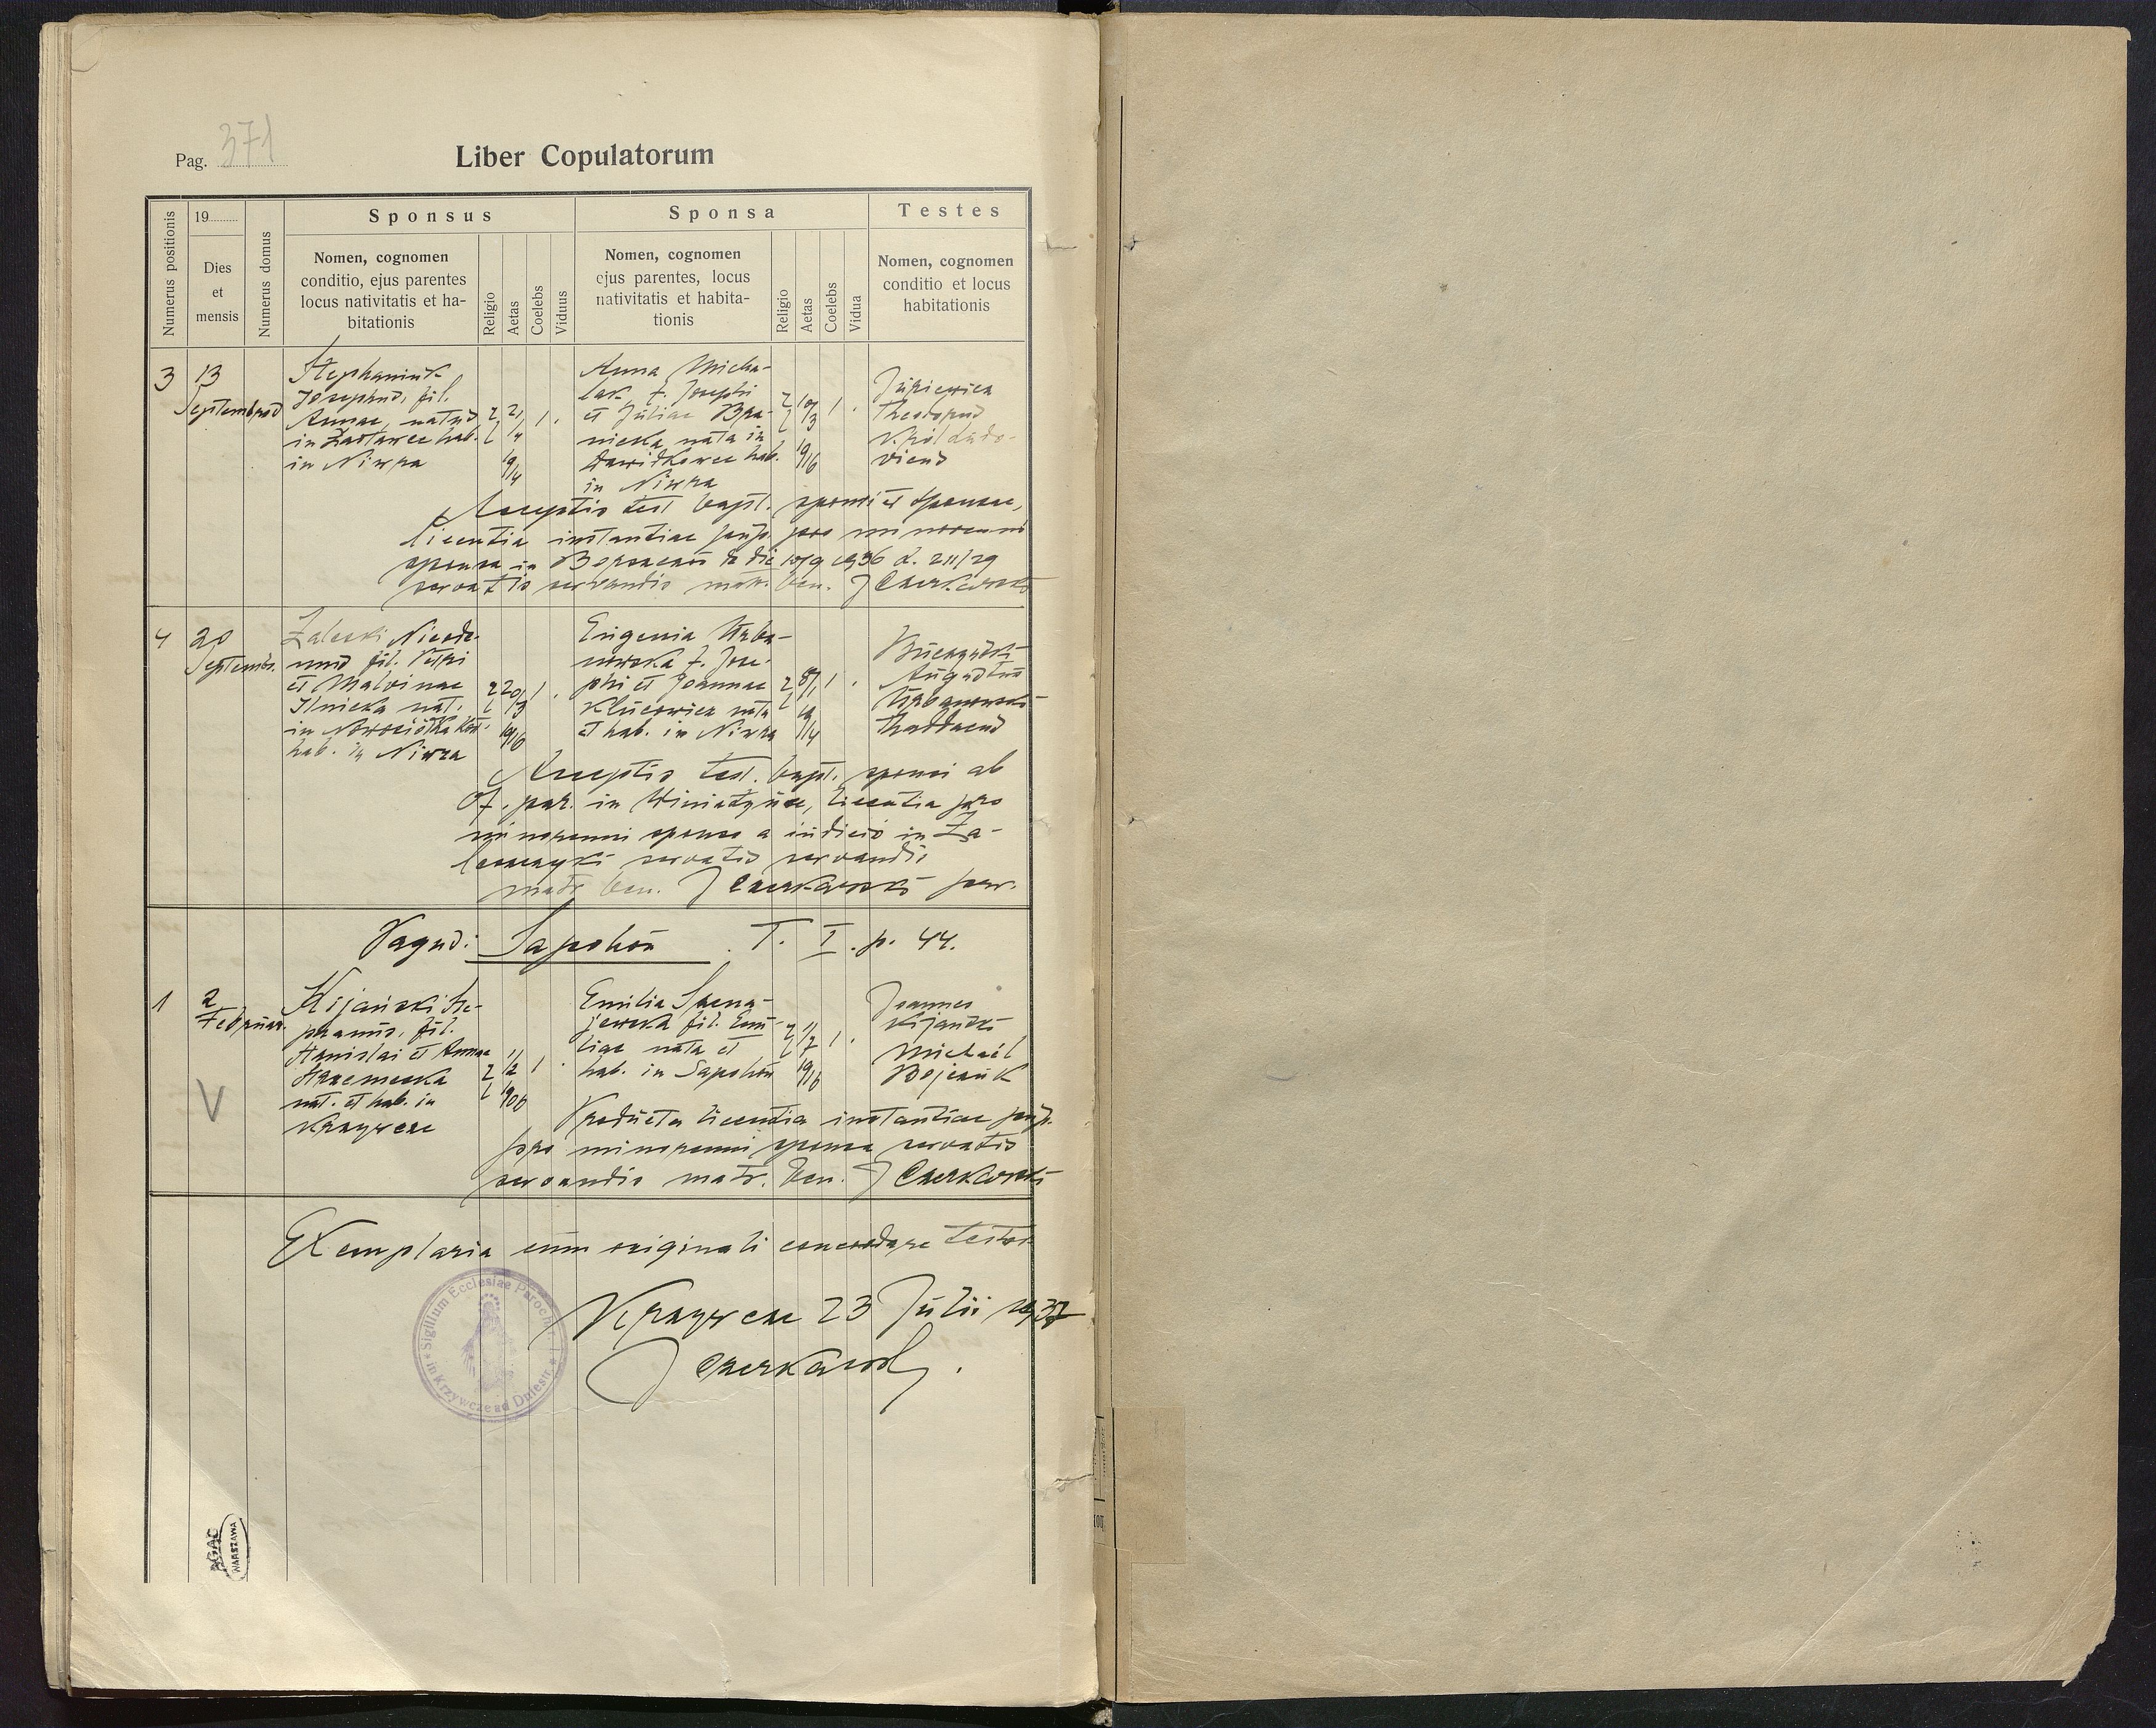 Pag. 371
Liber Copulatorum
Numerus positionis
19
Dies
et
mensis
Numerus domus
Sponsus
Nomen, cognomen
conditio, ejus parentes
locus nativitatis et ha-
bitationis
Religio
Aetas
Coelebs
Viduus
Sponsa
Nomen, cognomen
ejus parentes, locus
nativitatis et habita-
tionis
Religio
Aetas
Coelebs
Vidua
Testes
Nomen, cognomen
conditio et locus
habitationis
3
13
Septembris
Stephaniuk
Josephus, fil.
Annae, natus
in hab.
in Niwra
21/4
19/4
1
Anna Micha-
lak, f. Josephi
et Juliae Bra-
nicka nata in
Dawidkowce hab.
in Niwra
10/3
19/16
1
Jurkiewicz
Theodorus
Ludo-
vicus
Acceptis test bapt. sponsi et sponsae,
licentia instantiae pro minorenni
sponsa in de die 10/9 1936 L. 211/29
servatis servandis matr. ben. J Czerkawski
4
20
Septembr.
Zaleski Nicode-
mus fil. Petri
et Malvinae
Ilnicka nat.
in Nowosiółka
hab. in Niwra
20/3
19/16
1
Eugenia Urba-
nowska f. Jose-
phi et Joannae
Klucewicz nata
et hab. in Niwra
8/1
19/14
1
Buczyński
Augustus
Urbanowski
Thaddaeus
Acceptis test. bapt. sponsi ab
Of. par. in Winiatyńce, licentia pro
minorenni sponso a iudicio in Za-
leszczyki servatis servandis
matr ben. J Czerkawski par.
Pagus: Sapohów T. I. p. 44.
1
2
Februar.
V
Kijański Ste-
phanus, fil.
Stanislai et Annae
Strzemecka
nat. et hab. in
Krzywcze
11/12
1906
1
Emilia Szeng-
jewska fil. Emi-
liae nata et
hab. in Sapohów
11/7
19/16
1
Joannes
Kijański
Michaël
Bojczuk
Producta licentia instantiae
pro minorenni sponsa servatis
servandis matr. ben. J Czerkawski
Exemplaria cum originali concordare testor
Krzywcze 23 Julii 1937
J Czerkawski.
Sigillum Ecclesiae Paroch.
in Krzywcze ad Dniestr.
AGAD
WARSZAWA